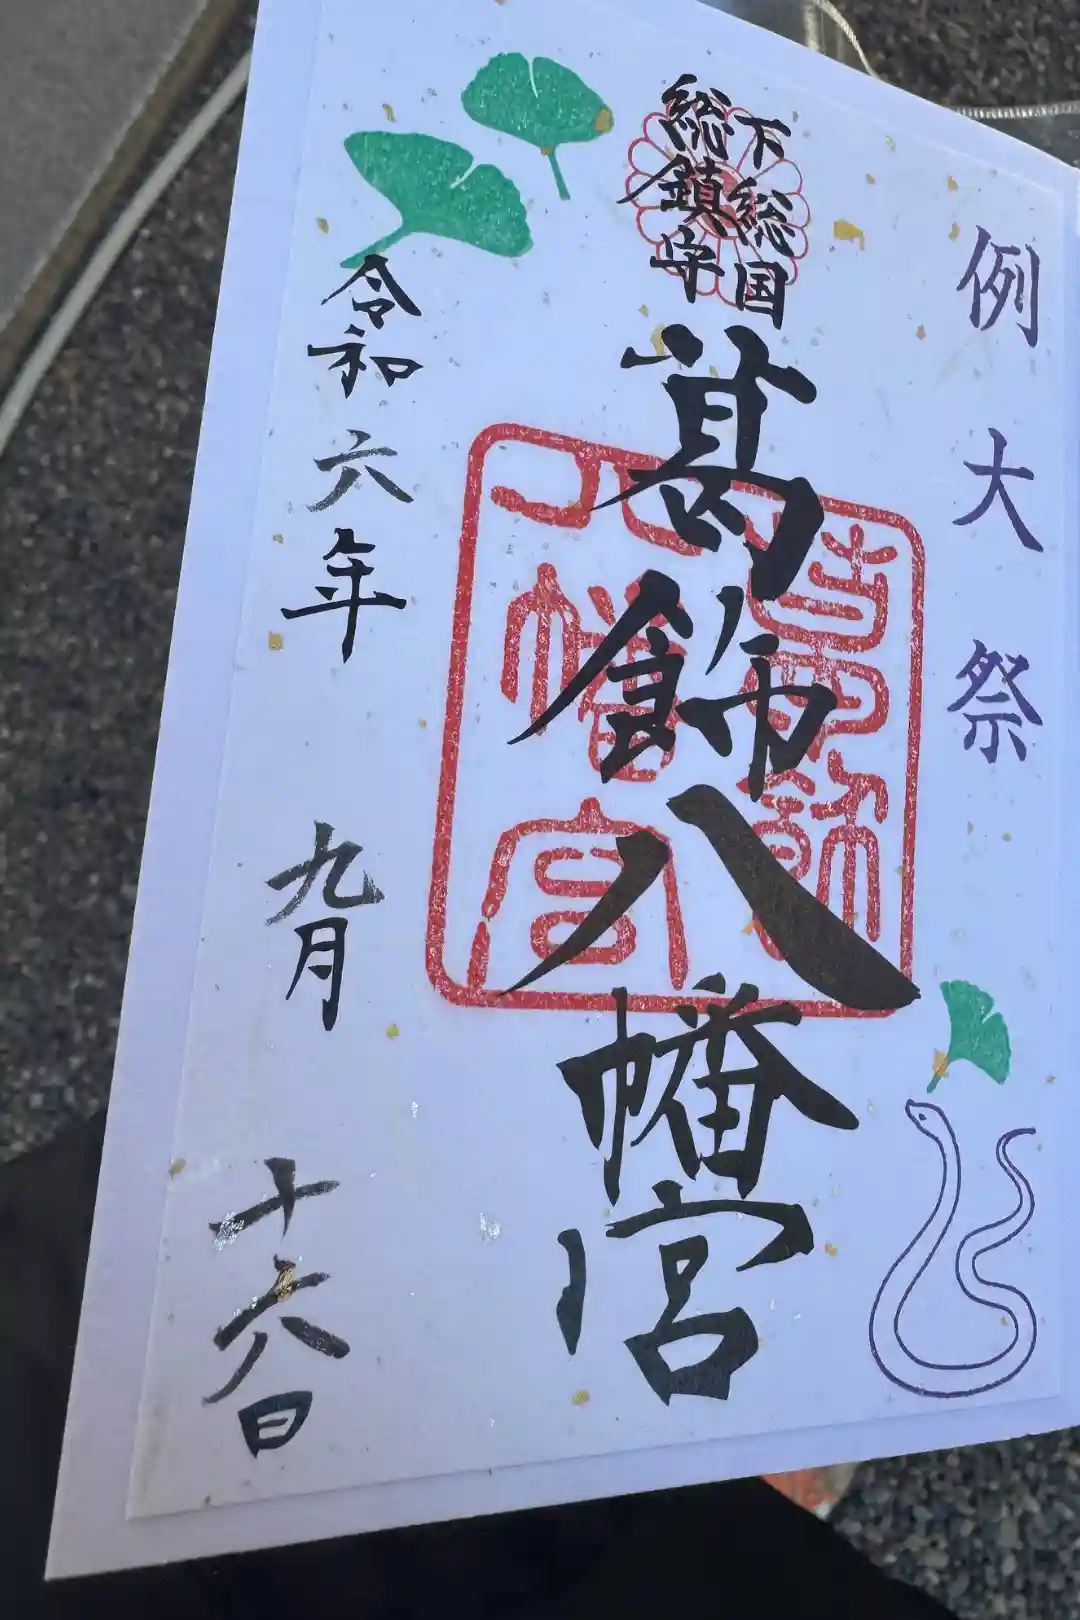 例大祭
下総国
総鎮守
葛飾八幡宮
葛飾
八幡宮
令和六年
九月
十六日